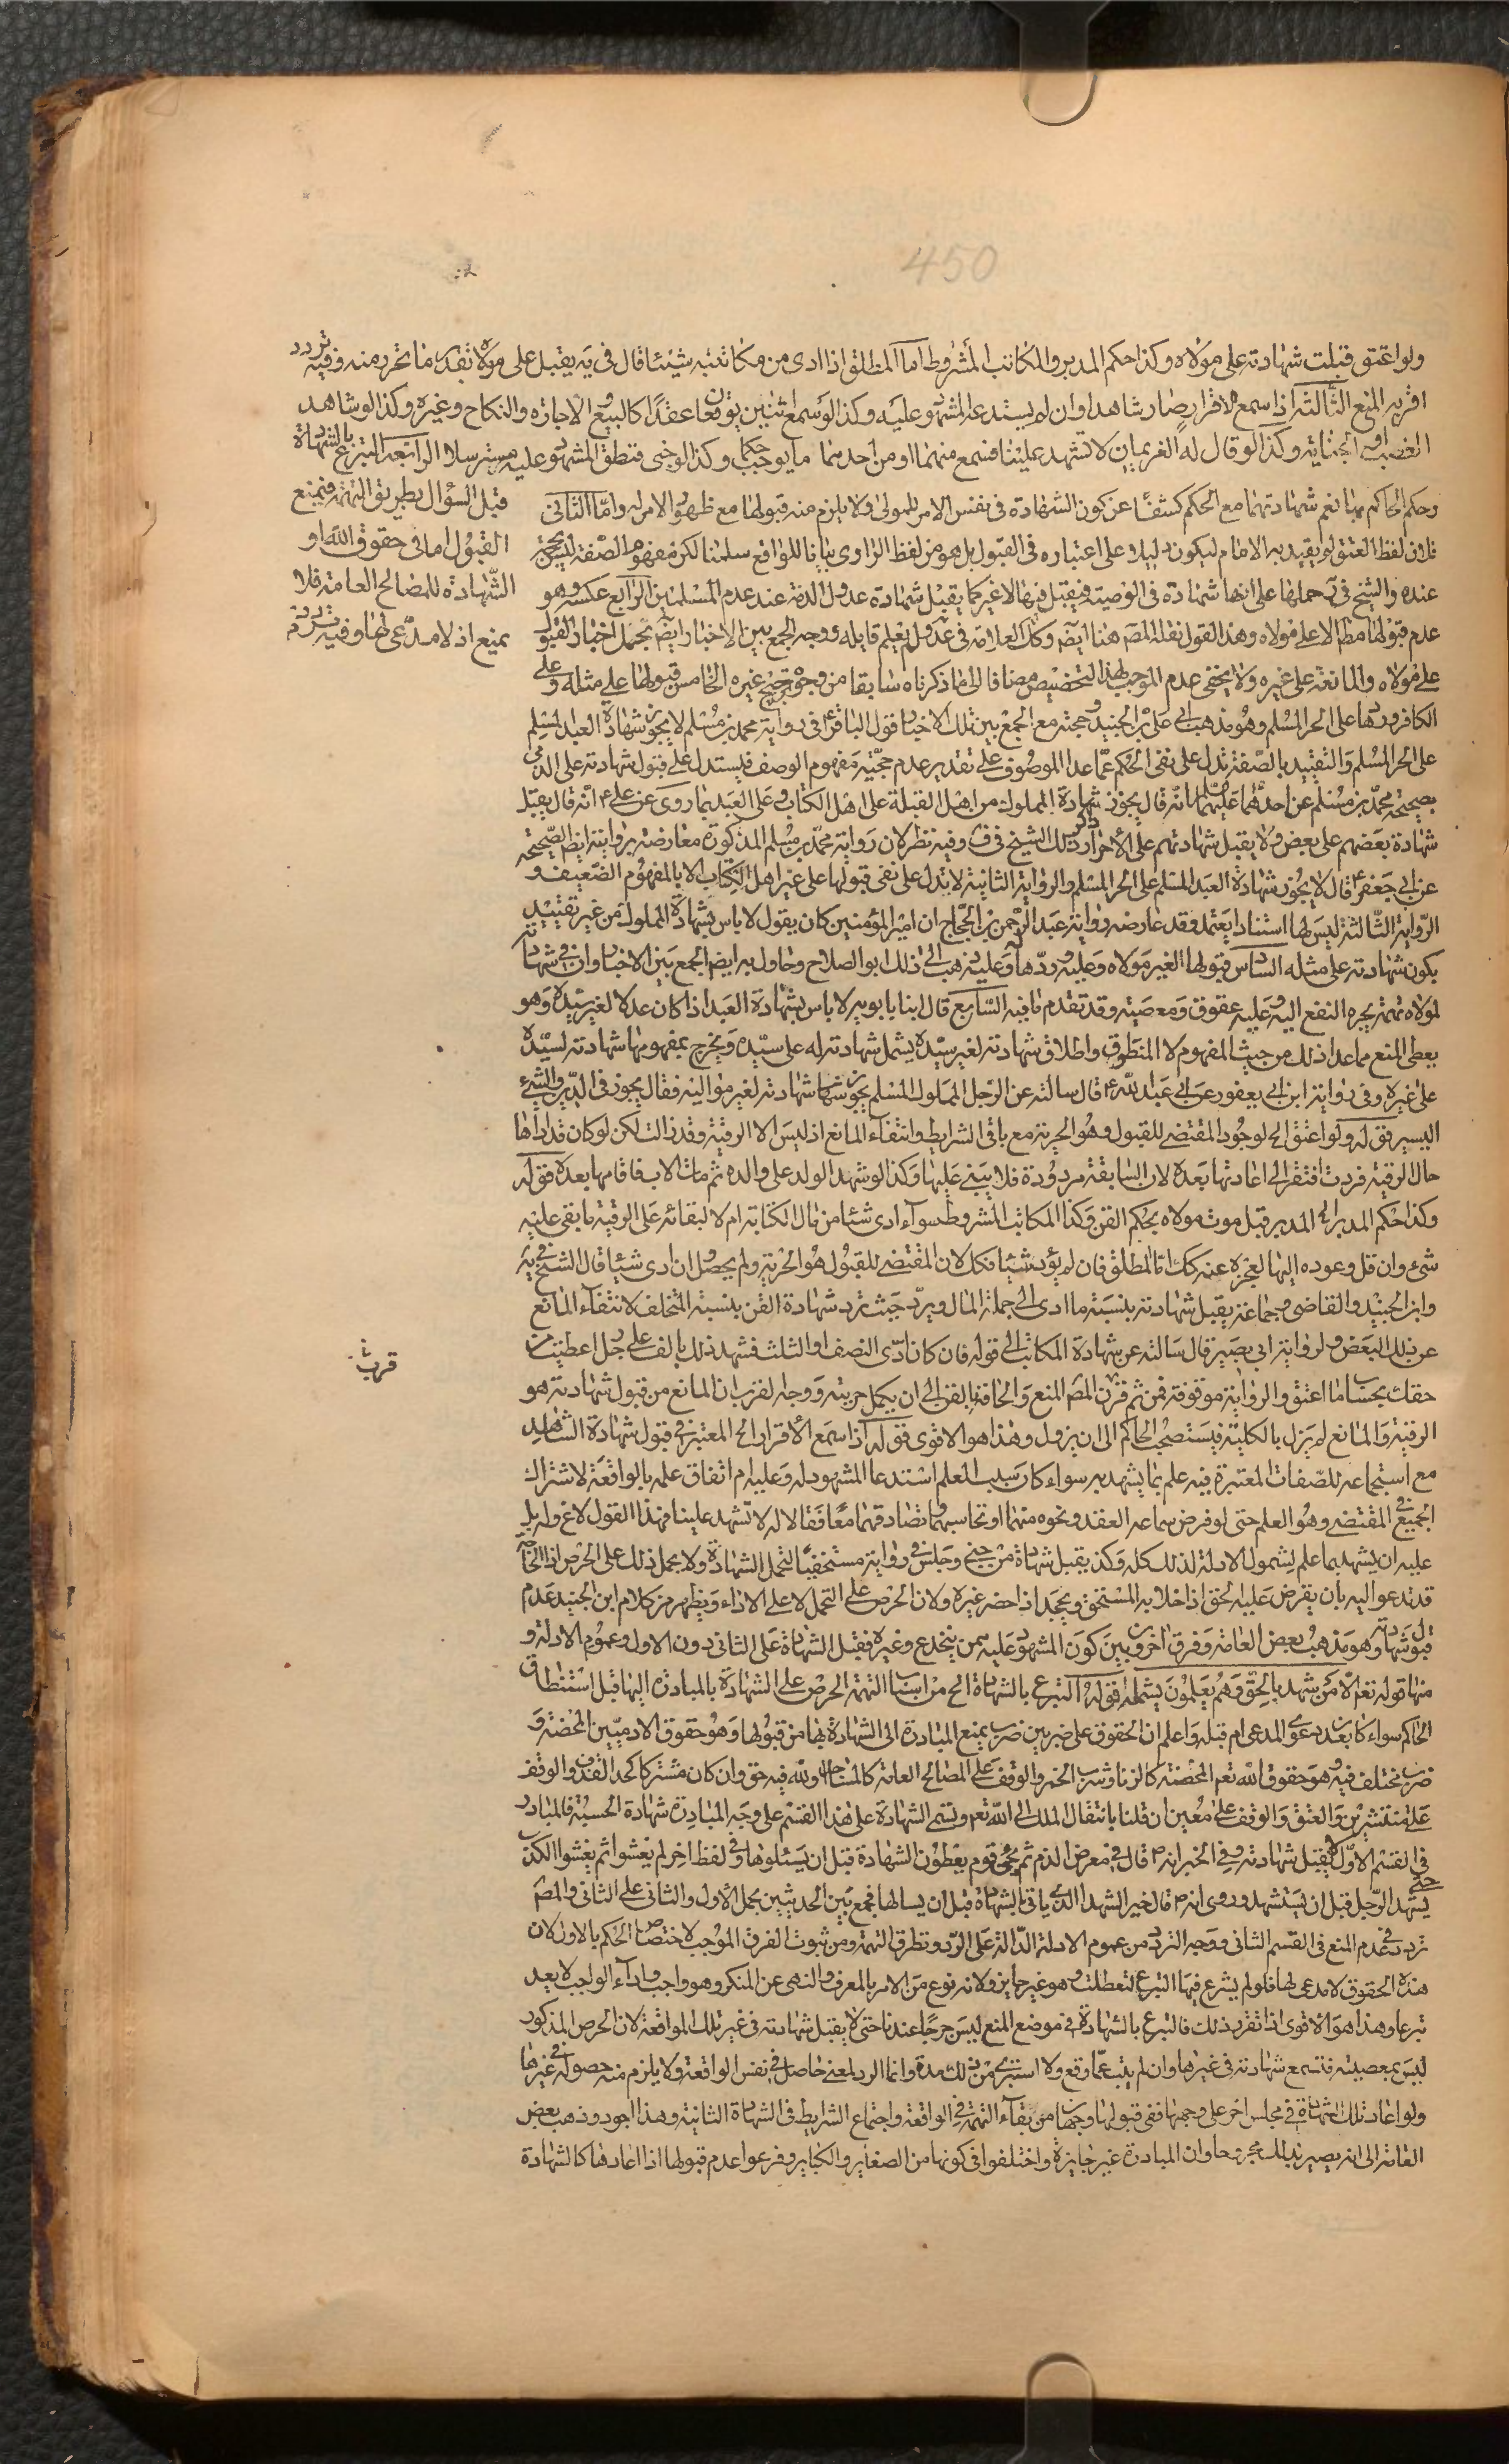 450
ولو اعتق قبلت شهادته على مولاه وكذا حكم المدبر والمكاتب المشروط اما المطلق اذا ادى من مكاتبته شيئا قال في يه يقبل على مولاه بقدر ما تحرر منه وفيه تردد
اقربه المنع الثالثة اذا سمع الاقرار صار شاهدا وان لم يستدعه المشهود عليه وكذا لو سمع اثنين يوقعان عقدا كالبيع والاجارة والنكاح وغيره وكذا لو شاهد
الغصب او الجناية وكذا لو قال له الغريمان لا تشهد علينا فسمع منهما او من احدهما ما يوجب حكما وكذا لو خبى فنطق المشهود عليه مسترسلا الرابعة التبرع بالشهادة
قبل السؤال بطريق التهمة فيمنع
القبول اما في حقوق الله او
الشهادة للمصالح العامة فلا
يمنع اذ لا مدعى لها وفيه تردد
وحكم الحاكم بمنع شهادتهما مع الحكم كشفا عن كون الشهادة في نفس الامر للمولى ولا يلزم منه قبولها مع ظهور الامر له واما الثاني
فلان لفظ العتق لم يقيد به الامام ليكون دليلا على اعتباره في القبول بل هو من لفظ الراوي بيانا للواقع سلمنا لكن مفهوم الصفة ليس بحجة
عنده والشيخ في حملها على انها شهادة في الوصية فيقبل فيها لا غير كما يقبل شهادة عدول الذمة عند عدم المسلمين الرابع عكسه وهو
عدم قبولها مط الا على مولاه وهذا القول نقله المصَ هنا ايضَ وكذلك العلامة في عد ولم يعلم قايله ووجه الجمع بين الاخبار ايضَ بحمل اخبار القبول
على مولاه والمانعة على غيره ولا يخفى عدم الموجب لهذا التخصيص مضافا الى ما ذكرناه سابقا من وجوه ترجيح غيره الخامس قبولها على مثله وعلى
الكافر وردها على الحر المسلم وهو مذهب ابي على بن الجنيد وحجته مع الجمع بين تلك الاخبار قول الباقر ع في رواية محمد بن مسلم لا يجوز شهادة العبد المسلم
على الحر المسلم والتقييد بالصفة تدل على نفى الحكم عما عدا الموصوف على تقدير عدم حجية مفهوم الوصف فيستدل على قبول شهادته على الذمى
بصحيحة محمد بن مسلم عن احدهما عليهما السلام انه قال يجوز شهادة المملوك من اهل القبلة على اهل الكتاب وعلى العبد بما روى عن على ع انه قال يقبل
شهادة بعضهم على بعض ولا يقبل شهادتهم على الاحرار ذكر ذلك الشيخ في ف وفيه نظر لان رواية محمد بن مسلم المذكورة معارضة بروايته ايضا الصحيحة
عن ابي جعفر ع قال لا يجوز شهادة العبد المسلم على الحر المسلم والرواية الثانية لا تدل على نفى قبولها على غير اهل الكتاب الا بالمفهوم الضعيف و
الرواية الثالثة ليس لها استنادا يعتمد وقد عارضه رواية عبد الرحمن بن الحجاج ان امير المؤمنين كان يقول لا باس بشهادة المملوك من غير تقييد
بكون شهادته على مثله السادس قبولها لغير مولاه وعليه وردها له وعليه ذهب الى ذلك ابو الصلاح وحاول به ايضا الجمع بين الاخبار وان في شهادته
لمولاه تهمة بجره النفع اليه وعليه عقوق ومعصية وقد تقدم ما فيه السابع قال ابنا بابويه لا باس بشهادة العبد اذا كان عدلا لغير سيده وهو
يعطى المنع مما عدا ذلك من حيث المفهوم لا المنطوق واطلاق شهادته لغير سيده يشمل شهادته له على سيده ويخرج بمفهومها شهادته لسيده
على غيره وفي رواية ابن ابي يعفور عن ابي عبد الله ع قال سالته عن الرجل المملوك المسلم يجوز شهادته لغير مواليه فقال يجوز في الدين والشئ
اليسير قوله ولو اعتق الخ لوجود المقتضى للقبول وهو الحرية مع باقى الشرايط وانتفاء المانع اذ ليس الا الرقية وقد زالت لكن لو كان قد اداها
حال الرقية فردت افتقر الى اعادتها بعده لان السابقة مردودة فلا يبنى عليها وكذا لو شهد الولد على والده ثم مات الاب فاقامها بعده قوله
وكذا حكم المدبر الخ المدبر قبل موت مولاه بحكم القن وكذا المكاتب المشروط سواء ادى شئا من مال الكتابة ام لا لبقائه على الرقية ما بقى عليه
شئ وان قل وعوده اليها لعجزه عنه كك اما المطلق فان لم يؤد شيئا فكك لان المقتضى للقبول هو الحرية ولم يحصل وان ادى شيئا قال الشيخ في يه
وابن الجنيد والقاضى وجماعة يقبل شهادته بنسبة ما ادى الى جملة المال ويرد حيث ترد شهادة القن بنسبة المتخلف لانتفاء المانع
عن ذلك البعض ولرواية ابى بصير قال سالته عن شهادة المكاتب الى قوله فان كان ادى النصف او الثلث فشهد لك بالف على رجل اعطيت من
حقك بحساب ما اعتق والرواية موقوفة فمن ثم قرب المصَ المنع والحاقه بالقن الى ان يكمل حريته ووجه القرب ان المانع من قبول شهادته هو
الرقية والمانع لم يزل بالكلية فيستصحب الحاكم الى ان يزول وهذا هو الاقوى قوله اذا سمع الاقرار الخ المعتبر في قبول شهادة الشاهد
مع استجماعه للصفات المعتبرة فيه علم بما يشهد به سواء كان سبب العلم استدعا المشهود له وعليه ام اتفاق علمه بالواقعة لاشتراك
الجميع في المقتضى وهو العلم حتى لو فرض سماعه العقد ونحوه منهما او تحاسبهما وتصادقهما معا فقالا له لا تشهد علينا فهذا القول لاغ وله بل
عليه ان يشهد بما علم لشمول الادلة لذلك كله وكذا يقبل شهادة من خبى وجلس في زاوية مستخفيا لتحمل الشهادة ولا يحمل ذلك على الحرص اذا الحاجة
قد تدعو اليه بان يقر من عليه الحق اذا خلا به المستحق ويجحد اذا حضر غيره ولان الحرص على التحمل لا على الاداء ويظهر من كلام ابن الجنيد عدم
قبول شهادته وهو مذهب بعض العامة وفرق اخرون بين كون المشهود عليه ممن ينخدع وغيره فقبل الشهادة على الثانى دون الاول وعموم الادلة و
منها قوله تعم الا من شهد بالحق وهم يعلمون يشمله قوله التبرع بالشهادة الخ من اسباب التهمة الحرص على الشهادة بالمبادرة اليها قبل استنطاق
الحاكم سواء كان بعد دعوى المدعى ام قبله واعلم ان الحقوق على ضربين ضرب يمنع المبادرة الى الشهادة بها من قبولها وهو حقوق الادميين المحضة و
ضرب مختلف فيه وهو حقوق الله تعم المحضة كالزنا وشرب الخمر والوقف على المصالح العامة كالمساجد او لله فيه حق وان كان مشتركا كحد القذف والوقف
على منتشرين والعتق والوقف على معين ان قلنا بانتقال الملك الى الله تعم وتسمى الشهادة على هذا القسم على وجه المبادرة شهادة الحسبة فالمبادر
في القسم الاول لا يقبل شهادته وفي الخبر انه ص قال في معرض الذم ثم يجئ قوم يعطون الشهادة قبل ان يسئلوها وفى لفظ اخر ثم يفشو الكذب
حتى يشهد الرجل قبل ان يستشهد وروى انه ص قال خير الشهدا الذى ياتى بالشهادة قبل ان يسالها فجمع بين الحديثين بحمل الاول والثانى على الثانى والمصَ
تردد في عدم المنع في القسم الثانى ووجه التردد من عموم الادلة الدالة على الرد وتطرق التهمة ومن ثبوت الفرق الموجب لاختصاص الحكم بالاول لان
هذه الحقوق لا مدعى لها فلو لم يشرع فيها التبرع لتعطلت وهو غير جايز ولانه نوع من الامر بالمعروف والنهى عن المنكر وهو واجب واداء الواجب لا يعد
تبرعا وهذا هو الاقوى اذا تقرر ذلك فالتبرع بالشهادة في موضع المنع ليس جرحا عندنا حتى لا يقبل شهادته في غير تلك الواقعة لان الحرص المذكور
ليس بمعصية فتسمع شهادته في غيرها وان لم يتب عما وقع ولا استبرئ من ذلك مدة وانما الرد لمعنى حاصل في نفس الواقعة ولا يلزم منه حصوله في غيرها
ولو اعاد تلك الشهادة في مجلس اخر على وجهها ففى قبولها وجهان من بقاء التهمة في الواقعة واجتماع الشرايط في الشهادة الثانية وهذا اجود وذهب بعض
العامة الى انه يصير بذلك مجروحا وان المبادرة غير جايزة واختلفوا في كونها من الصغاير والكباير وفرعوا عدم قبولها اذا اعادها كالشهادة